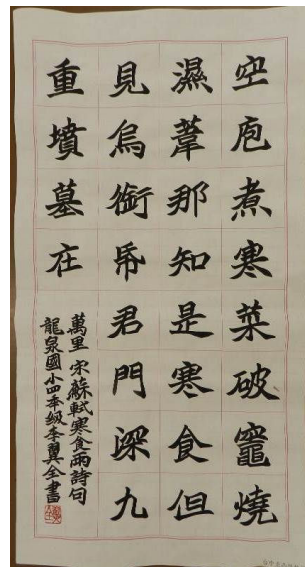 空庖煮寒菜破竈燒
濕葦那知是寒食但
見烏銜帋君門深九
重墳墓在
萬里 宋蘇軾寒食雨詩句
龍泉國小四年級李翼全書